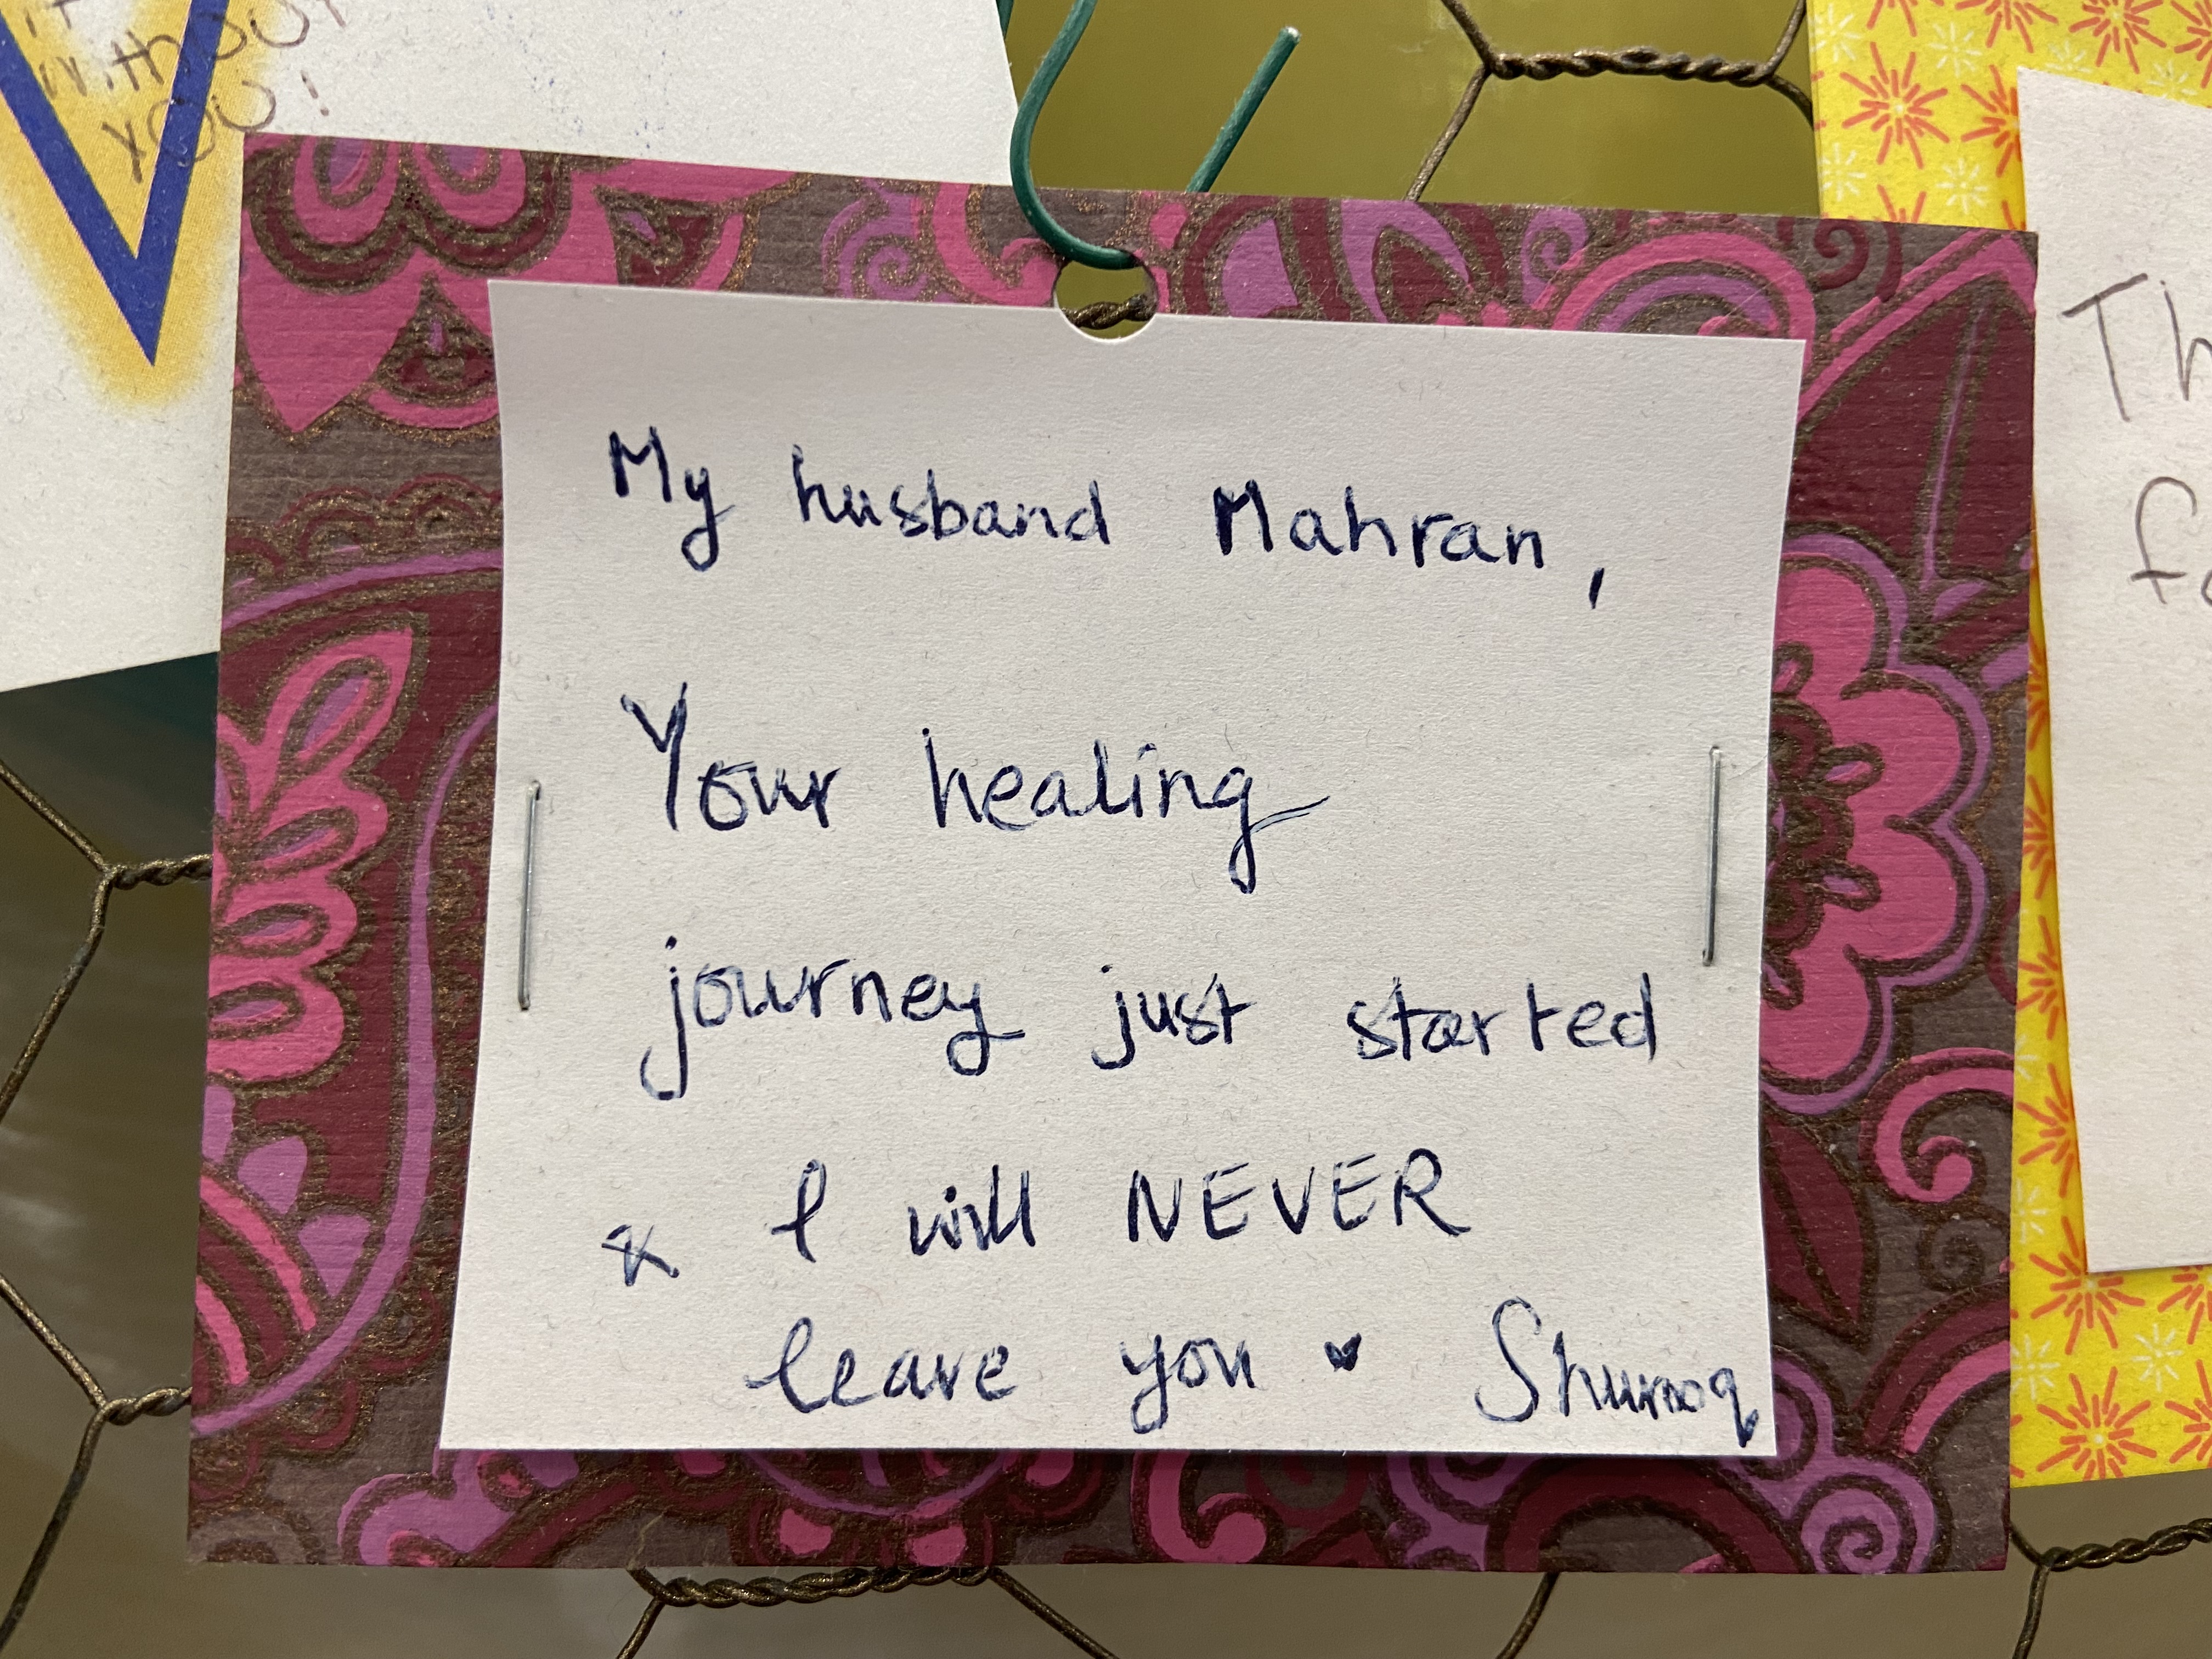 WITHOUT
YOU!
My husband Mahran,
Your healing
journey just started
x I will NEVER
leave you ♥ Shurooq
Th
fo